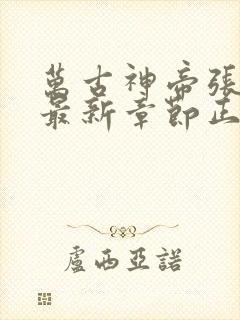 萬古神帝張
最新章節正
盧西亞諾